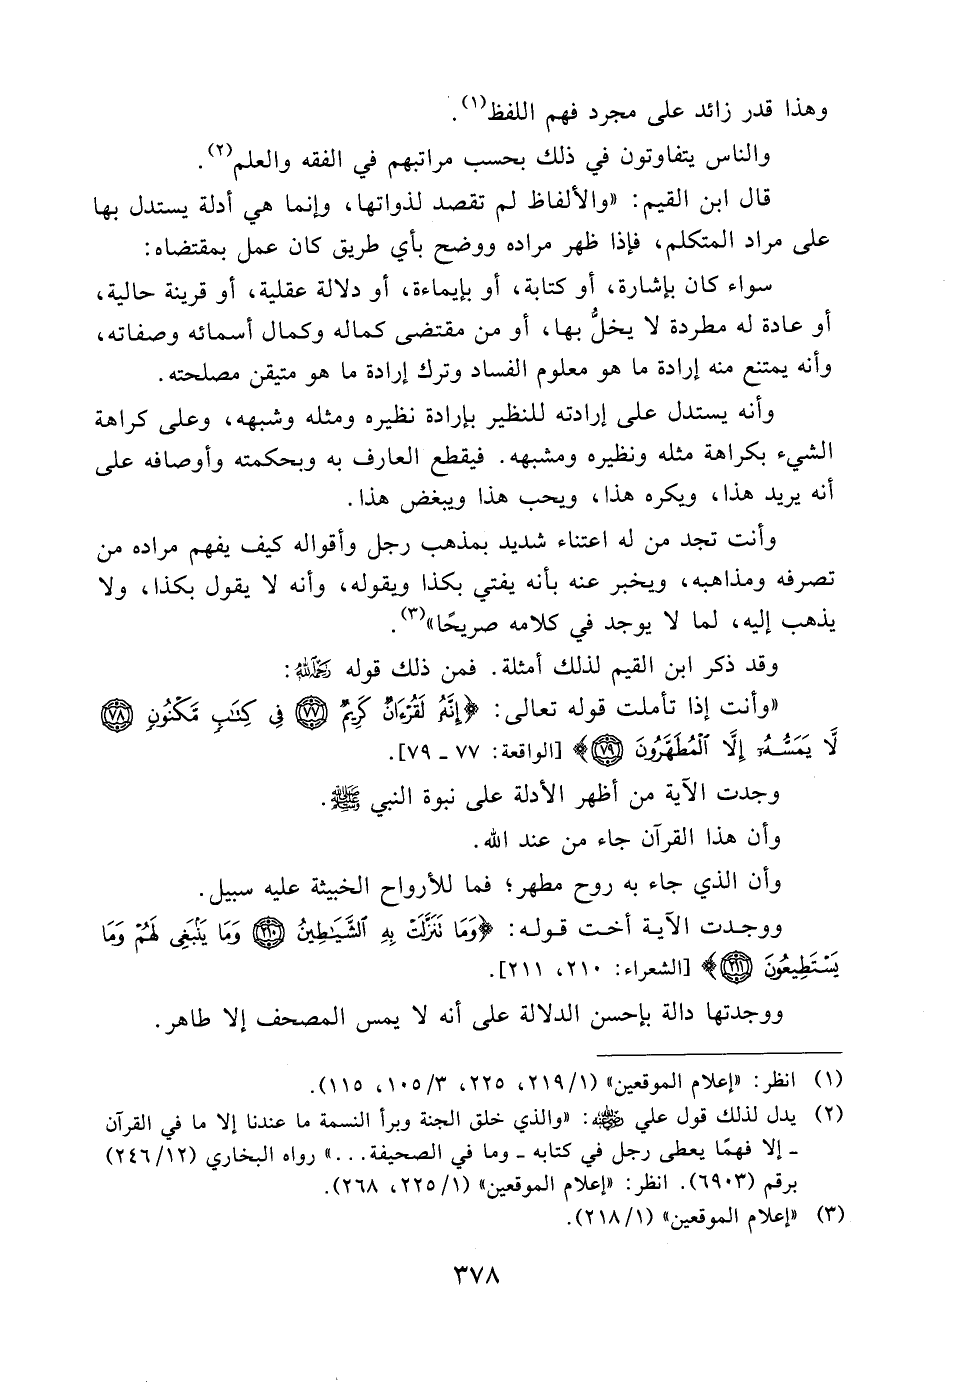 وهذا قدر زائد على مجرد فهم اللفظ(١).
والناس يتفاوتون في ذلك بحسب مراتبهم في الفقه والعلم(٢).
قال ابن القيم: «والألفاظ لم تقصد لذواتها، وإنما هي أدلة يستدل بها
على مراد المتكلم، فإذا ظهر مراده ووضح بأي طريق كان عمل بمقتضاه:
سواء كان بإشارة، أو كتابة، أو بإيماءة، أو دلالة عقلية، أو قرينة حالية،
أو عادة له مطردة لا يخلُّ بها، أو من مقتضى كماله وكمال أسمائه وصفاته،
وأنه يمتنع منه إرادة ما هو معلوم الفساد وترك إرادة ما هو متيقن مصلحته.
وأنه يستدل على إرادته للنظير بإرادة نظيره ومثله وشبهه، وعلى كراهة
الشيء بكراهة مثله ونظيره ومشبهه. فيقطع العارف به وبحكمته وأوصافه على
أنه يريد هذا، ويكره هذا، ويحب هذا ويبغض هذا.
وأنت تجد من له اعتناء شديد بمذهب رجل وأقواله كيف يفهم مراده من
تصرفه ومذاهبه، ويخبر عنه بأنه يفتي بكذا ويقوله، وأنه لا يقول بكذا، ولا
يذهب إليه، لما لا يوجد في كلامه صريحًا»(٣).
وقد ذكر ابن القيم لذلك أمثلة. فمن ذلك قوله رحمه الله:
«وأنت إذا تأملت قوله تعالى: ﴿إِنَّهُۥ لَقُرْءَانٌ كَرِيمٌ ۝٧٧ فِى كِتَٰبٍ مَّكْنُونٍ ۝٧٨
لَّا يَمَسُّهُۥٓ إِلَّا ٱلْمُطَهَّرُونَ ۝٧٩﴾ [الواقعة: ٧٧ ـ ٧٩].
وجدت الآية من أظهر الأدلة على نبوة النبي ﷺ.
وأن هذا القرآن جاء من عند الله.
وأن الذي جاء به روح مطهر؛ فما للأرواح الخبيثة عليه سبيل.
ووجدت الآية أخت قوله: ﴿وَمَا نَنَزَّلَتْ بِهِ ٱلشَّيَٰطِينُ ۝٢١٠ وَمَا يَنۢبَغِى لَهُمْ وَمَا
يَسْتَطِيعُونَ ۝٢١١﴾ [الشعراء: ٢١٠، ٢١١].
ووجدتها دالة بإحسن الدلالة على أنه لا يمس المصحف إلا طاهر.
(١) انظر: «إعلام الموقعين» (١/٢١٩، ٢٢٥، ٣/١٠٥، ١١٥).
(٢) يدل لذلك قول علي رضي الله عنه: «والذي خلق الجنة وبرأ النسمة ما عندنا إلا ما في القرآن
ـ إلا فهمًا يعطى رجل في كتابه ـ وما في الصحيفة...» رواه البخاري (١٢/٢٤٦)
برقم (٦٩٠٣). انظر: «إعلام الموقعين» (١/٢٢٥، ٢٦٨).
(٣) «إعلام الموقعين» (١/٢١٨).
٣٧٨